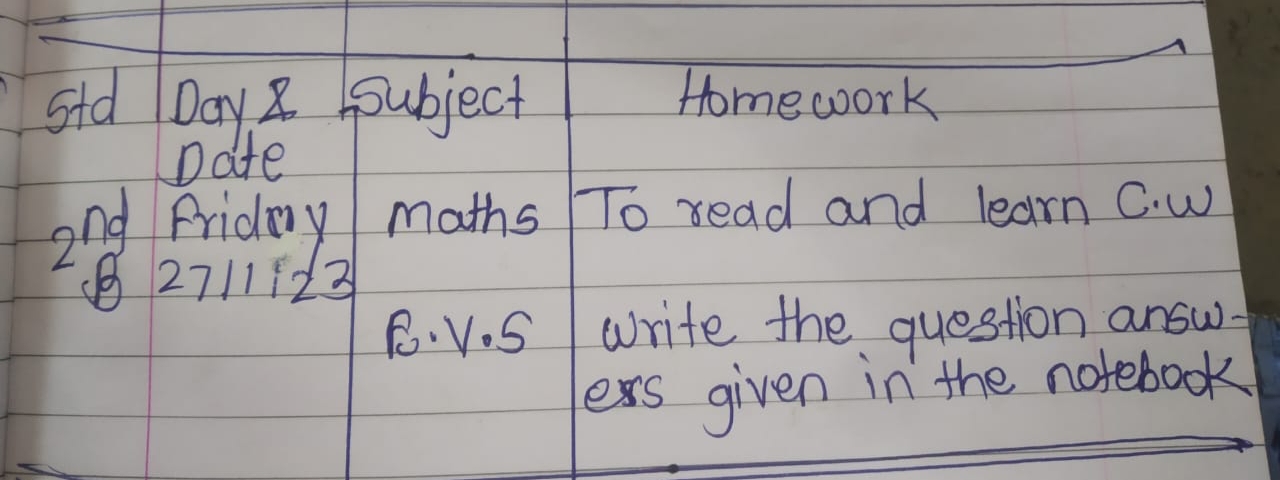 Std Day & Subject Homework
Date
2nd Friday Maths To read and learn C.W
B 27/1/23
E.V.S write the question answ-
ers given in the notebook